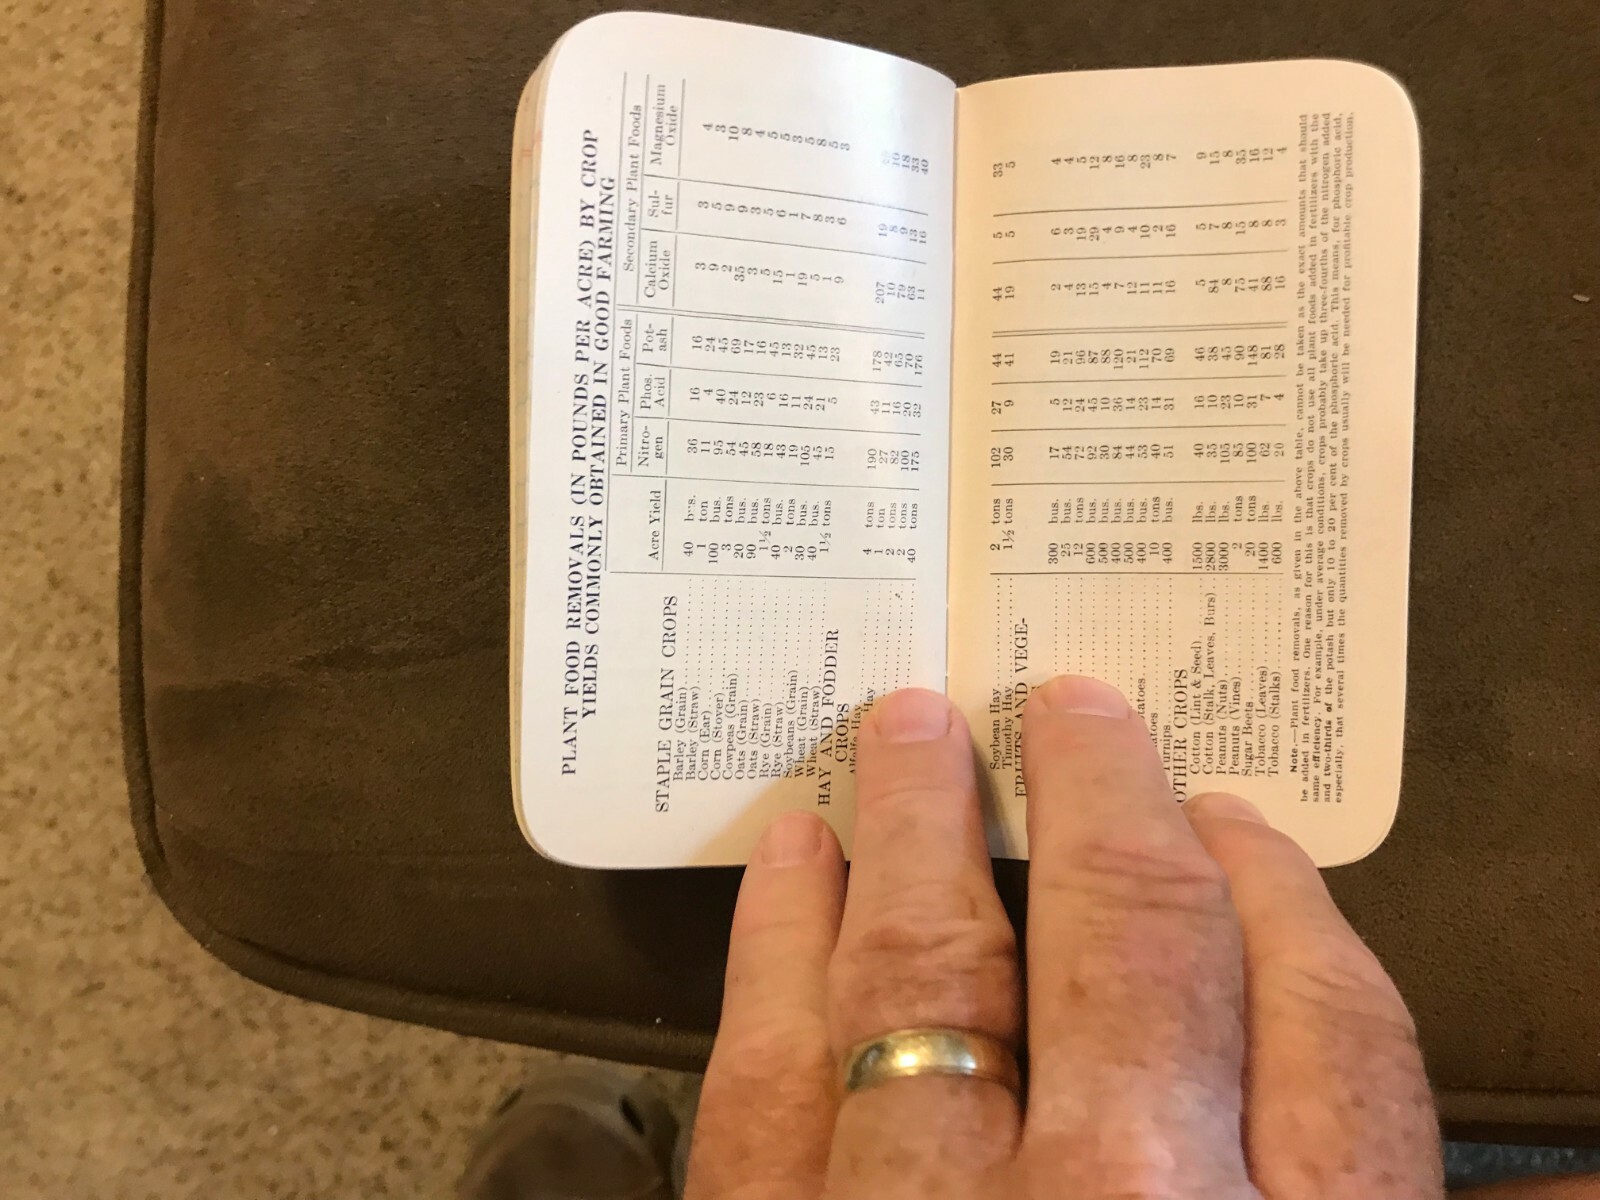 PLANT FOOD REMOVALS (IN POUNDS PER ACRE) BY CROP
YIELDS COMMONLY OBTAINED IN GOOD FARMING
Primary Plant Foods Secondary Plant Foods
Acre Yield Nitro- Phos. Pot- Calcium Sul- Magnesium
gen Acid ash Oxide fur Oxide
STAPLE GRAIN CROPS
Barley (Grain) 40 bus. 36 16 16 3 3 4
Barley (Straw) 1 ton 11 4 24 9 5 3
Corn (Ear) 100 bus. 95 40 45 2 9 10
Corn (Stover) 3 tons 54 24 69 35 9 8
Cowpeas (Grain) 20 bus. 45 12 17 3 3 4
Oats (Grain) 90 bus. 58 23 16 5 5 5
Oats (Straw) 1½ tons 18 6 45 15 6 5
Rye (Grain) 40 bus. 43 16 13 1 1 3
Rye (Straw) 2 tons 19 11 32 19 7 5
Soybeans (Grain) 30 bus. 105 24 45 5 8 8
Wheat (Grain) 40 bus. 45 21 13 1 3 5
Wheat (Straw) 1½ tons 15 5 23 9 6 3
HAY AND FODDER
CROPS
Alfalfa Hay 4 tons 190 43 178 207 19
Hay 1 ton 27 11 42 10 8 10
2 tons 82 16 65 79 9 18
2 tons 100 20 70 63 13 33
40 tons 175 32 176 11 16 40
Soybean Hay 2 tons 102 27 44 44 5 33
Timothy Hay 1½ tons 30 9 41 19 5 5
FRUITS AND VEGE-
300 bus. 17 5 19 2 6 4
25 bus. 54 12 21 4 3 4
12 tons 72 24 96 13 19 5
600 bus. 92 45 87 15 29 12
500 bus. 30 10 88 4 4 8
400 bus. 84 36 120 7 9 16
500 bus. 44 14 21 12 4 8
tatoes 400 bus. 53 23 112 11 10 23
atoes 10 tons 40 14 70 11 2 8
Turnips 400 bus. 51 31 69 16 16 7
OTHER CROPS
Cotton (Lint & Seed) 1500 lbs. 40 16 46 5 5 9
Cotton (Stalk, Leaves, Burs) 2800 lbs. 35 10 38 84 7 15
Peanuts (Nuts) 3000 lbs. 105 23 45 8 8 8
Peanuts (Vines) 2 tons 85 10 90 75 15 35
Sugar Beets 20 tons 100 31 148 41 8 16
Tobacco (Leaves) 1400 lbs. 62 7 81 88 8 12
Tobacco (Stalks) 600 lbs. 20 4 28 16 3 4
Note.—Plant food removals, as given in the above table, cannot be taken as the exact amounts that should
be added in fertilizers. One reason for this is that crops do not use all plant foods added in fertilizers with the
same efficiency. For example, under average conditions, crops probably take up three-fourths of the nitrogen added
and two-thirds of the potash but only 10 to 20 per cent of the phosphoric acid. This means, for phosphoric acid,
especially, that several times the quantities removed by crops usually will be needed for profitable crop production.